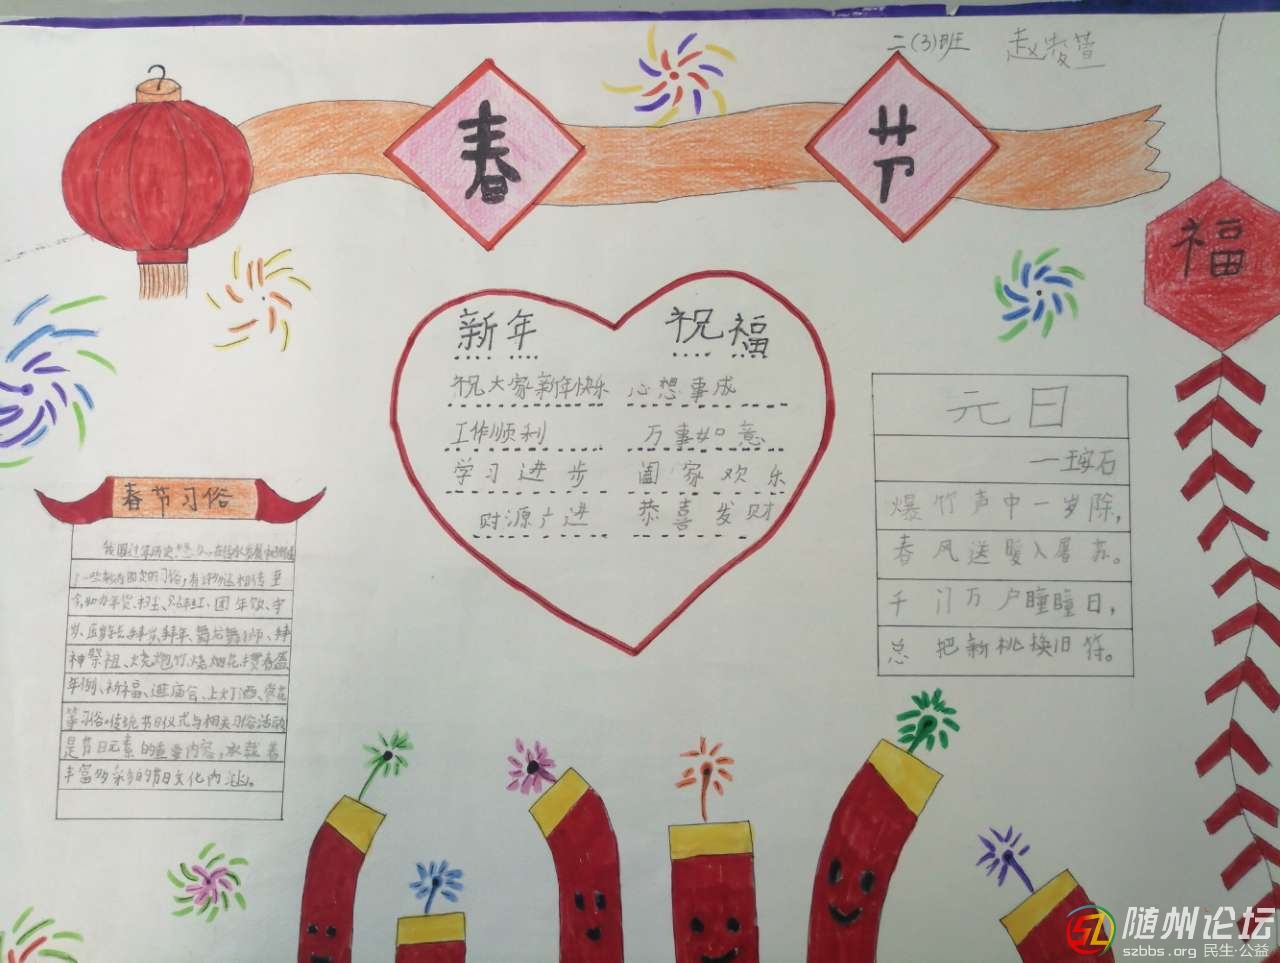 二(3)班
春节
福
新年 祝福
祝大家新年快乐 心想事成
工作顺利 万事如意
学习进步 阖家欢乐
财源广进 恭喜发财
元日
—王安石
爆竹声中一岁除,
春风送暖入屠苏。
千门万户瞳瞳日,
总把新桃换旧符。
春节习俗
我国过年历史悠久,在传承发展中
了一些较为固定的习俗,有许多还相传至
今,如办年货、扫尘、贴年红、团年饭、守
岁、压岁钱、拜岁、拜年、舞龙舞狮、拜
神祭祖、烧炮竹、烧烟花、
年例、祈福、逛庙会、上灯酒、赏花
等习俗。传统节日仪式与相关习俗活动
是节日元素的重要内容,承载着
丰富多彩的节日文化内涵。
随州论坛
szbbs.org 民生·公益